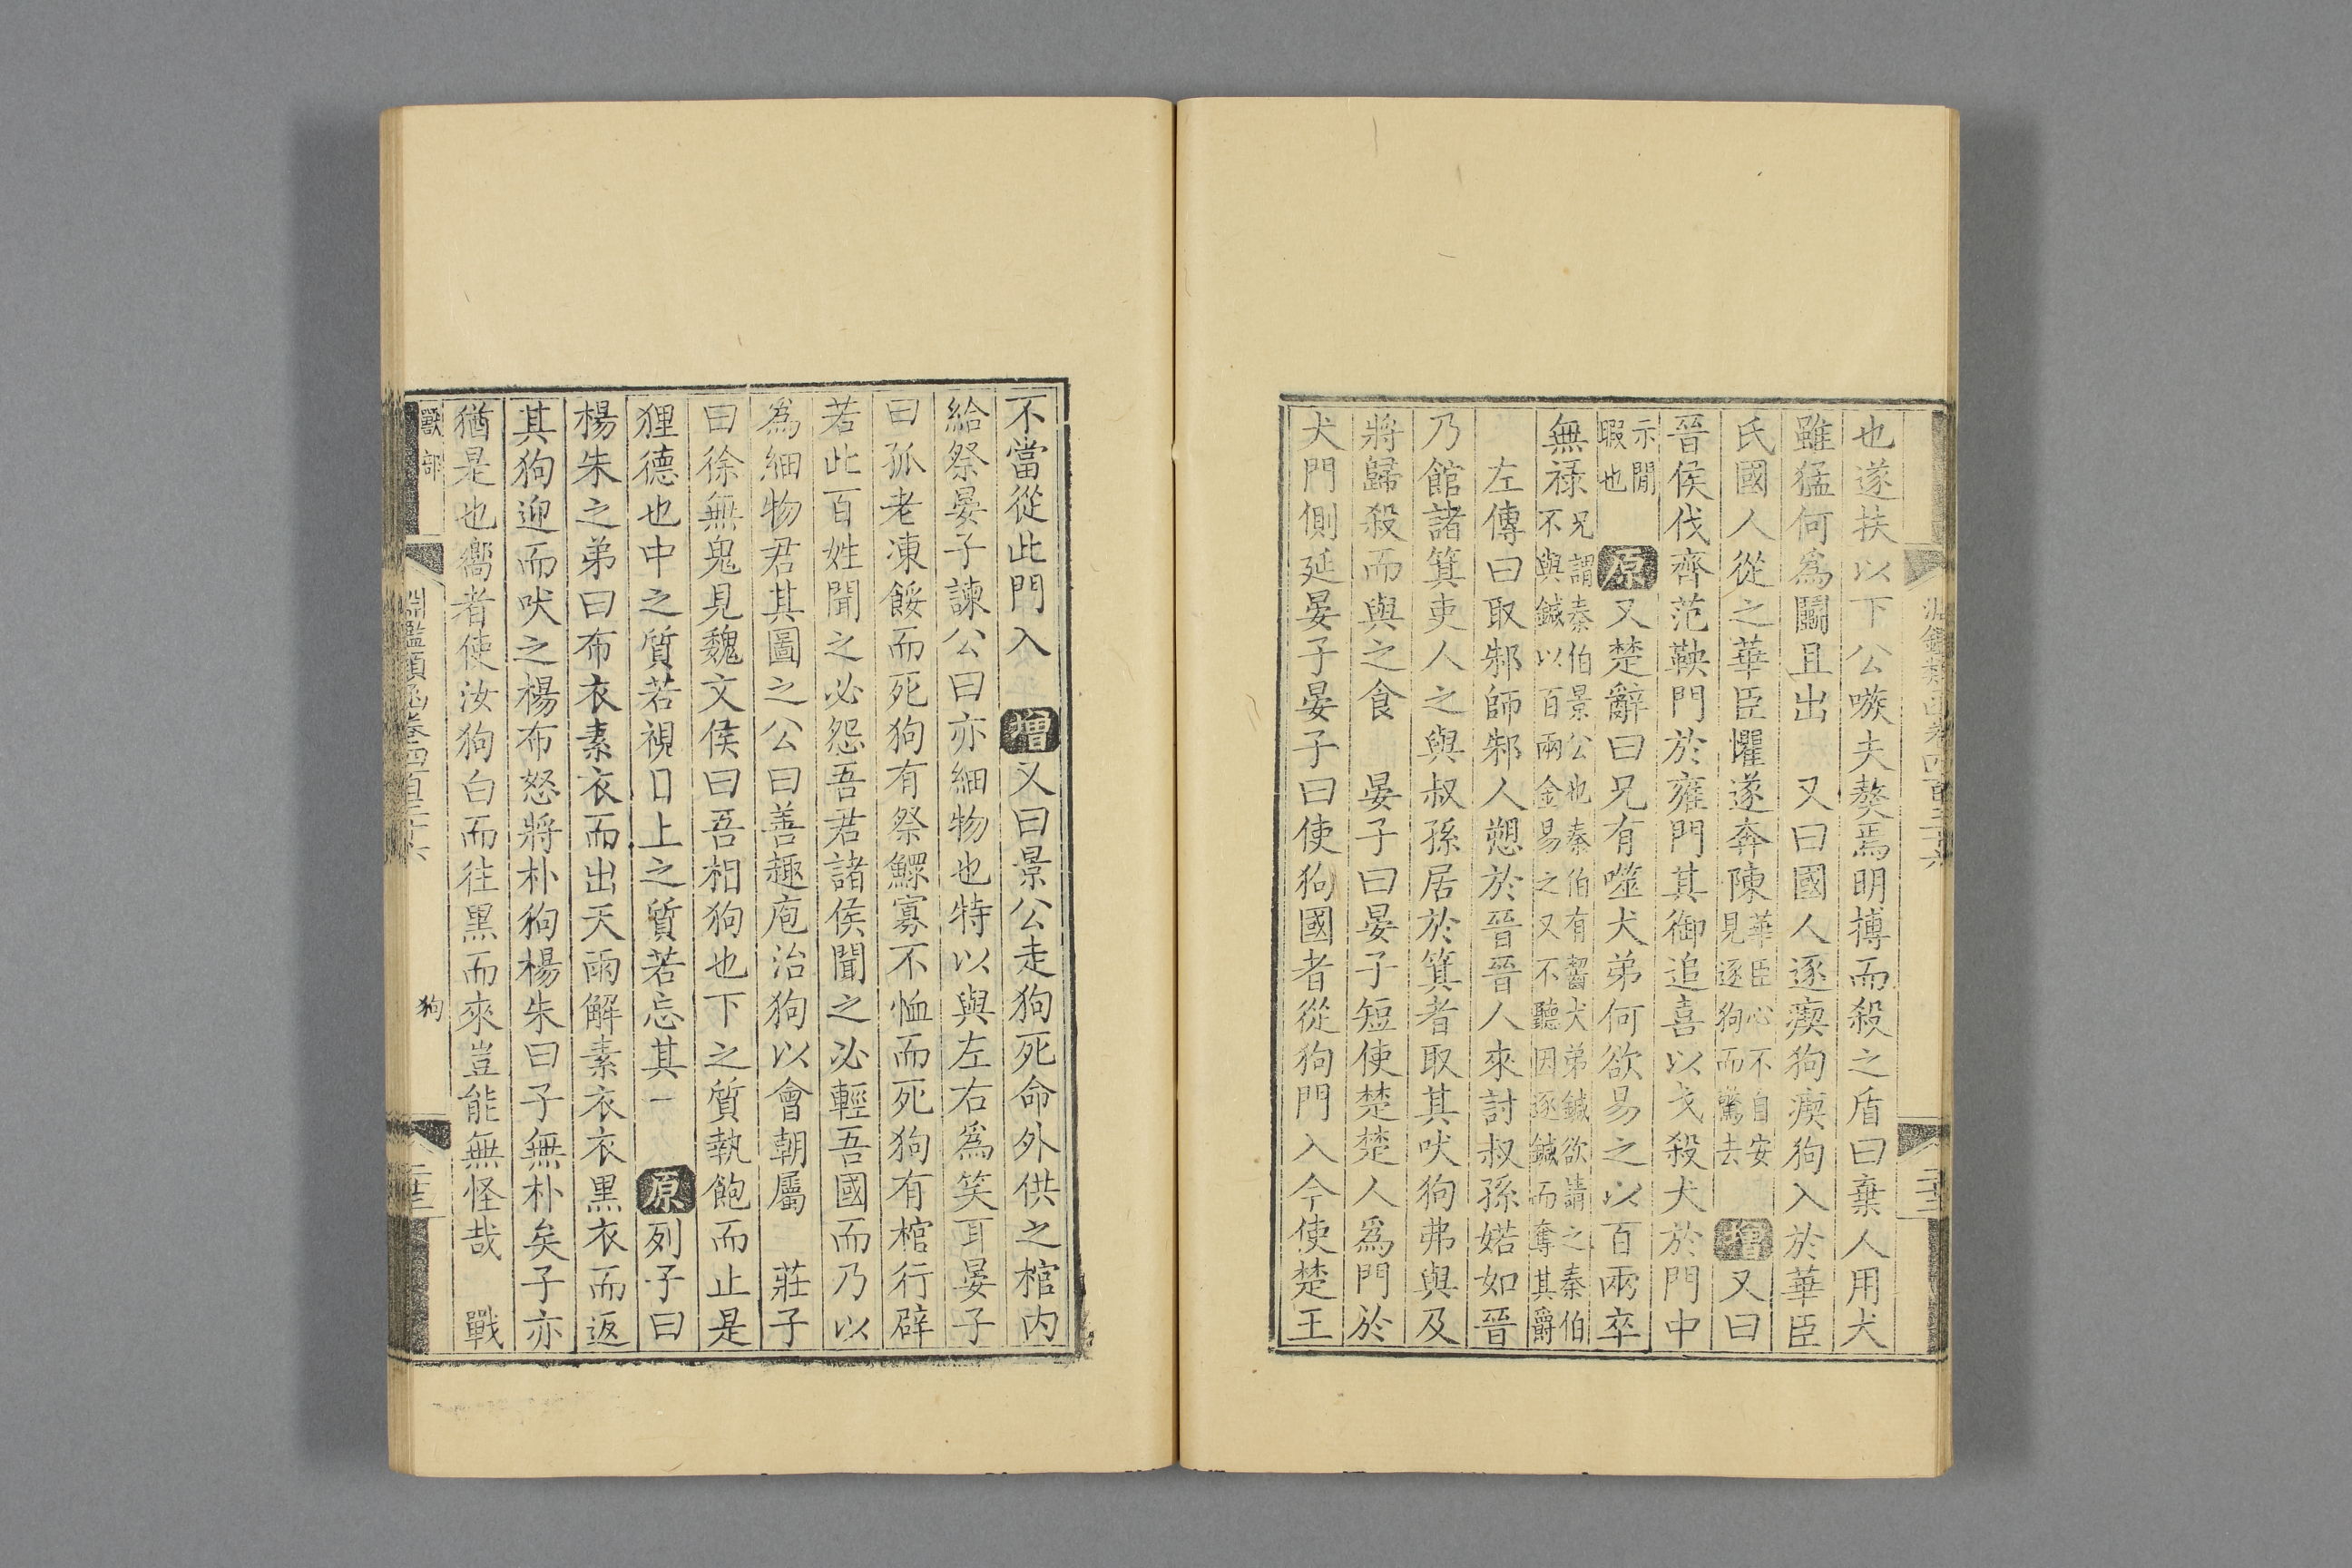 也遂扶以下公嗾夫獒焉明搏而殺之盾曰棄人用犬
雖猛何爲鬭且出　又曰國人逐瘈狗瘈狗入於華臣
氏國人從之華臣懼遂奔陳華臣心不自安見逐狗而驚去　增又曰
晉侯伐齊范鞅門於雍門其御追喜以戈殺犬於門中
示閒暇也　原又楚辭曰兄有噬犬弟何欲易之以百兩卒
無祿兄謂秦伯景公也秦伯有齧犬弟鍼欲請之秦伯不與鍼以百兩金易之又不聽因逐鍼而奪其爵
左傳曰取邾師邾人愬於晉晉人來討叔孫婼如晉
乃館諸箕吏人之與叔孫居於箕者取其吠狗弗與及
將歸殺而與之食　晏子曰晏子短使楚楚人爲門於
犬門側延晏子晏子曰使狗國者從狗門入今使楚王
不當從此門入　增又曰景公走狗死命外供之棺內
給祭晏子諫公曰亦細物也特以與左右爲笑耳晏子
曰孤老凍餒而死狗有祭鰥寡不恤而死狗有棺行辟
若此百姓聞之必怨吾君諸侯聞之必輕吾國而乃以
爲細物君其圖之公曰善趣庖治狗以會朝屬　莊子
曰徐無鬼見魏文侯曰吾相狗也下之質執飽而止是
狸德也中之質若視日上之質若忘其一　原列子曰
楊朱之弟曰布衣素衣而出天雨解素衣衣黑衣而返
其狗迎而吠之楊布怒將朴狗楊朱曰子無朴矣子亦
猶是也嚮者使汝狗白而往黑而來豈能無怪哉　戰
獸部　狗